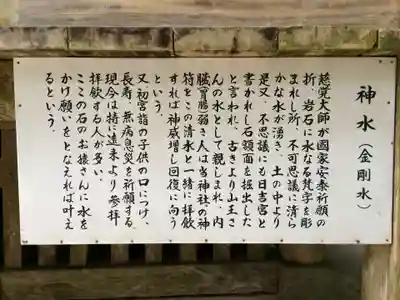 神水（金剛水）
慈覚大師が國家安泰祈願の
折、岩石に水なる梵字を彫
まれし所、不可思議に清ら
かな水が湧き、土の中より
是又、不思議にも日吉宮と
書かれし石額面を掘出した
と言われ、古きより山王さ
んの水として親しまれ、内
臓（胃腸）弱き人は当神社の神
符をこの清水と一緒に拝飲
すれば神威増し回復に向う
という。
又、初宮詣の子供の口につけ、
長寿、無病息災を祈願する。
現今は特に遠来より参拝
拝飲する人が多い。
ここの石のお猿さんに水を
かけ願いをとなえれば叶え
るという。